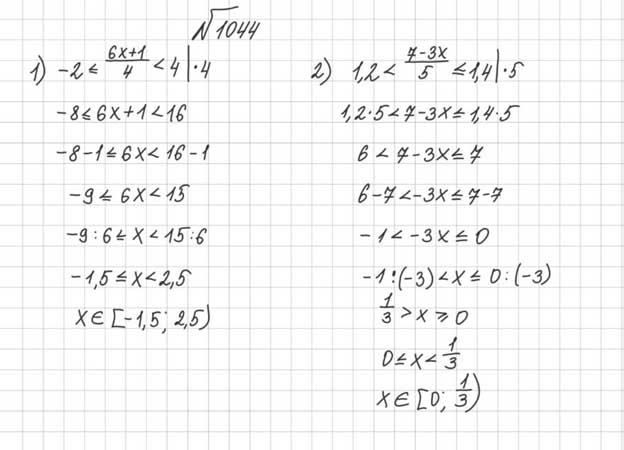 №1044
1) -2 ≤ (6x+1)/4 < 4 | ·4
-8 ≤ 6x+1 < 16
-8-1 ≤ 6x < 16-1
-9 ≤ 6x < 15
-9:6 ≤ x < 15:6
-1,5 ≤ x < 2,5
x ∈ [-1,5; 2,5)
2) 1,2 < (7-3x)/5 ≤ 1,4 | ·5
1,2·5 < 7-3x ≤ 1,4·5
6 < 7-3x ≤ 7
6-7 < -3x ≤ 7-7
-1 < -3x ≤ 0
-1:(-3) < x ≤ 0:(-3)
1/3 > x ≥ 0
0 ≤ x < 1/3
x ∈ [0; 1/3)